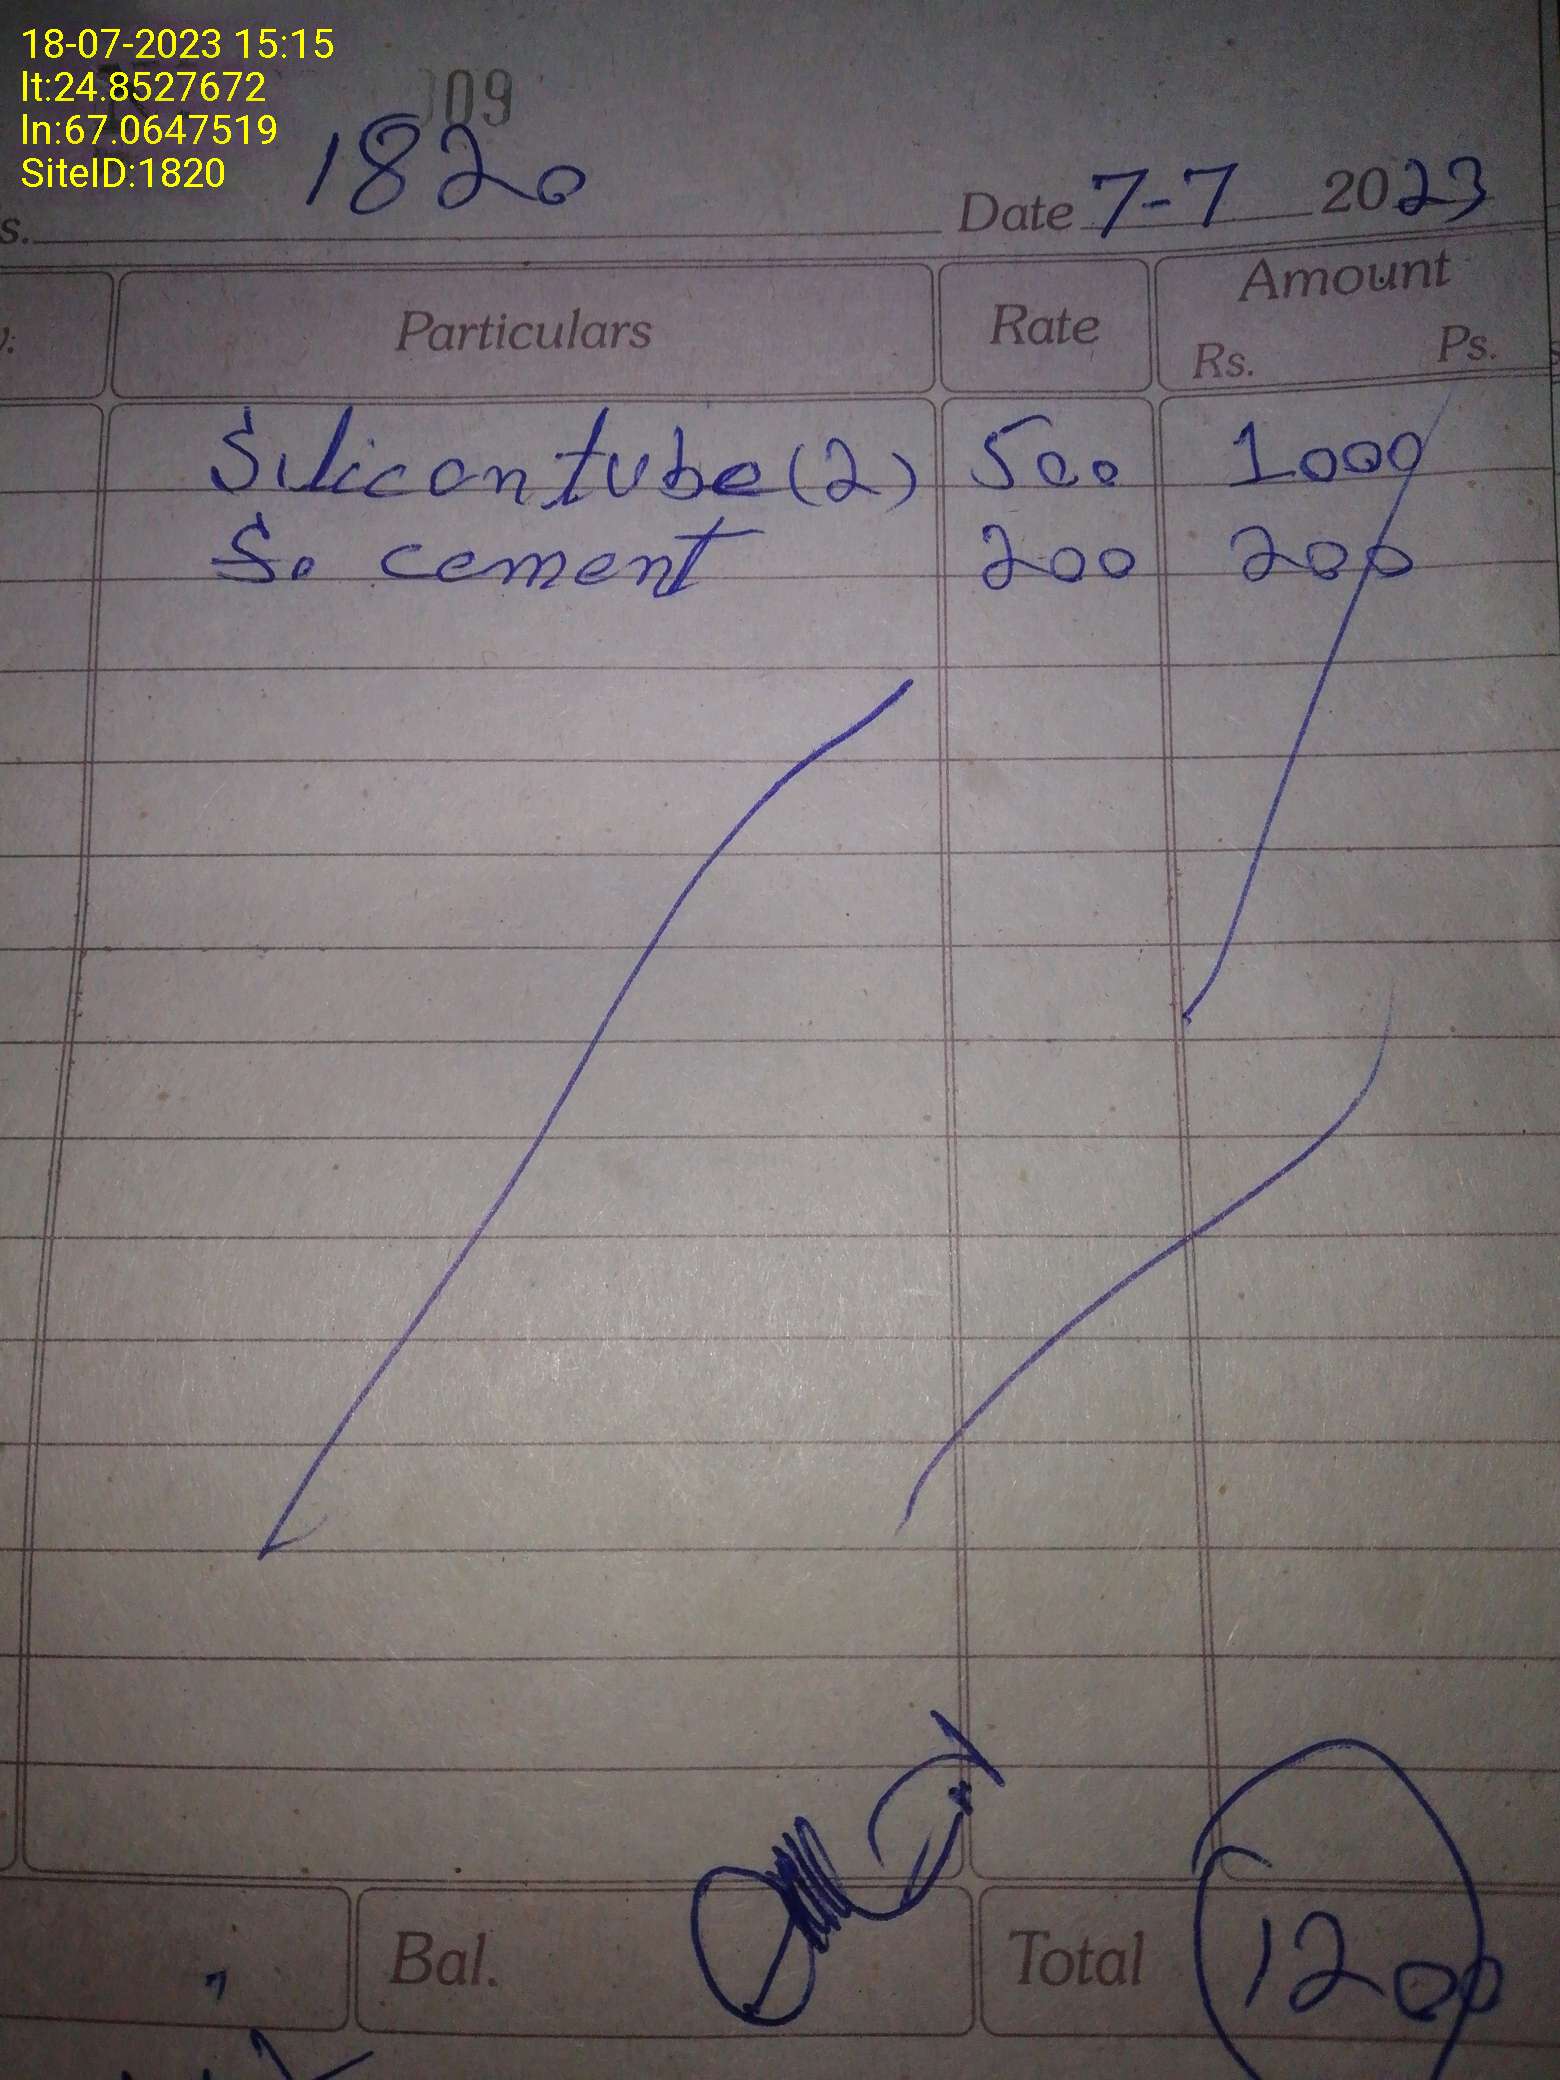 18-07-2023 15:15
lt:24.8527672
ln:67.0647519
SiteID:1820
09
1820
s. Date 7-7 2023
Particulars Rate Amount
Rs. Ps.
Silicon tube (2) 500 1000
So cement 200 200
Bal. Total 1200